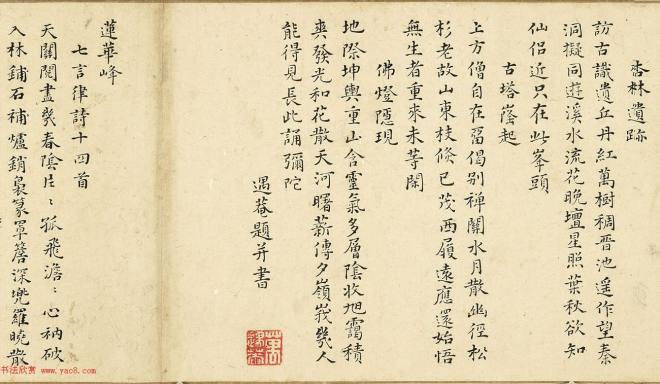 杏林遺跡
訪古識遺丘丹紅萬樹稠晋池遥作望秦
洞擬同遊溪水流花晚壇星照葉秋欲知
仙侣近只在此峯頭
古塔起
上方僧自在留偈别禅關水月散幽徑松
杉老故山東枝倏已茂西履遠應還始悟
無生者重來未等閑
佛燈隱現
地際坤輿重山含靈氣多層陰收旭靄積
爽發光和花散天河曙薪傳夕嶺峩幾人
能得見長此誦彌陀
遇菴題并書
蓮華峰
七言律詩十四首
天關閱盡幾春陰片〻孤飛澹〻心衲破
入林鋪石補爐銷裊篆罩簷深兜羅曉散
书法欣赏 www.yac8.com